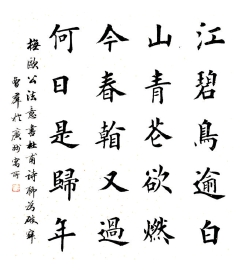 江碧鳥逾白
山青花欲燃
今春看又過
何日是歸年
橅歐公法意書杜甫詩聊為破
於廣州寓所